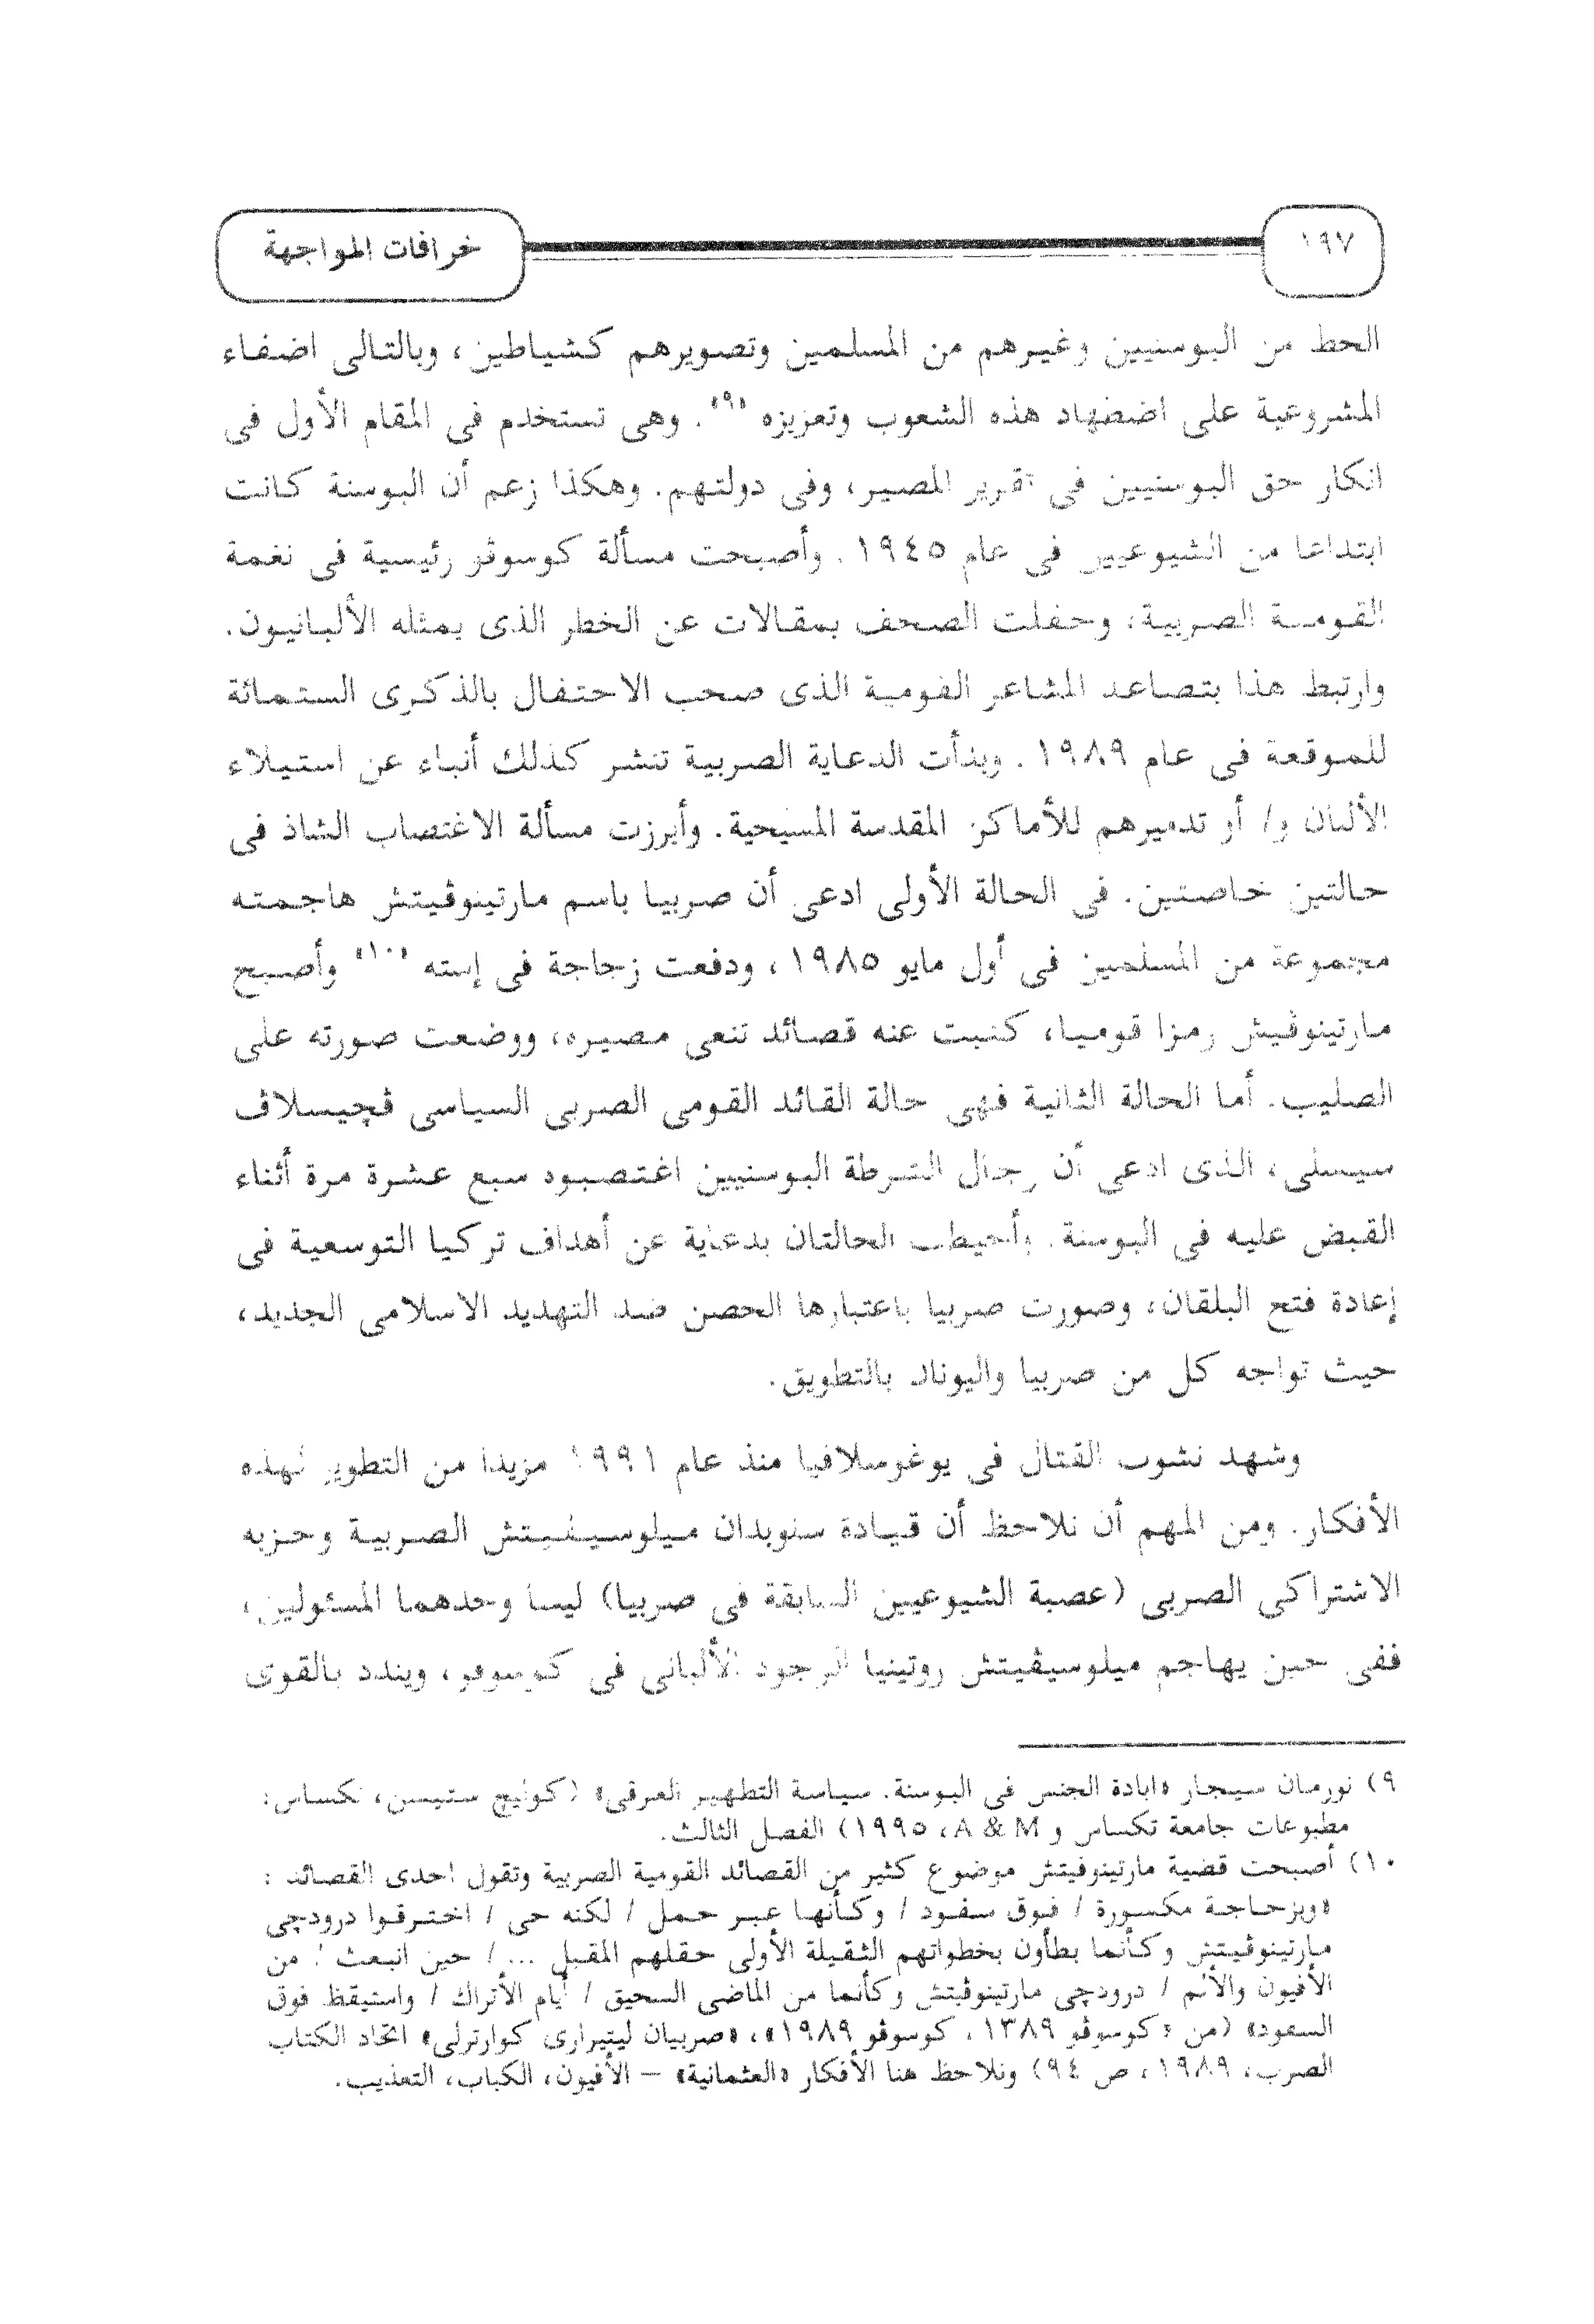 ١٩٧
خرافات المواجهة
الحط من البوسنيين وغيرهم من المسلمين وتصويرهم كشياطين، وبالتالى اضفاء
المشروعية على اضضهاد هذه الشعوب وتعزيزه «٩». وهى تستخدم فى المقام الأول فى
انكار حق البوسنيين فى تقرير المصير، وفى دولتهم. وهكذا زعم أن البوسنة كانت
ابتداعا من الشيوعيين فى عام ١٩٤٥. وأصبحت مسألة كوسوڤو رئيسية فى نغمة
القومية الصربية، وحفلت الصحف بمقالات عن الخطر الذى يمثله الألبانيون.
وارتبط هذا بتصاعد المشاعر القومية الذى صحب الاحتفال بالذكرى الستمائة
للموقعة فى عام ١٩٨٩. وبدأت الدعاية الصربية تنشر كذلك أنباء عن استيلاء
الألبان و/ أو تدميرهم للأماكن المقدسة المسيحية. وأبرزت مسألة الاغتصاب الشاذ فى
حالتين خاصتين. فى الحالة الأولى ادعى أن صربيا باسم مارتينوڤيتش هاجمته
مجموعة من المسلمين فى أول مايو ١٩٨٥، ودفعت زجاجة فى إسته «١٠» وأصبح
مارتينوڤيش رمزا قوميا، كتبت عنه قصائد تنعى مصيره، ووضعت صورته على
الصليب. أما الحالة الثانية فهى حالة القائد القومى الصربى السياسى ڤچيسلاڤ
سيسلى، الذى ادعى أن رجال الشرطة البوسنيين اغتصبوه سبع عشرة مرة أثناء
القبض عليه فى البوسنة. وأحيطت الحالتان بدعاية عن أهداف تركيا التوسعية فى
إعادة فتح البلقان، وصورت صربيا باعتبارها الحصن ضد التهديد الاسلامى الجديد،
حيث تواجه كل من صربيا واليونان بالتطويق.
وشهد نشوب القتال فى يوغوسلافيا منذ عام ١٩٩١ مزيدا من التطوير لهذه
الأفكار. ومن المهم أن نلاحظ أن قيادة سلوبدان ميلوسيڤيتش الصربية وحزبه
الاشتراكى الصربى (عصبة الشيوعيين السابقة فى صربيا) ليسا وحدهما المسئولين،
ففى حين يهاجم ميلوسيڤيتش روتينيا الوجود الألبانى فى كوسوڤو، ويندد بالقوى
٩) نورمان سيجار «ابادة الجنس فى البوسنة. سياسة التطهير العرقى» (كوليچ ستيسن، تكساس:
مطبوعات جامعة تكساس و A & M، ١٩٩٥) الفصل الثالث.
١٠) أصبحت قضية مارتينوڤيتش موضوع كثير من القصائد القومية الصربية وتقول احدى القصائد :
«وبزجاجة مكسورة / فوق سفود / وكأنها عبر حمل / لكنه حى / اخترقوا درودچى
مارتينوڤيتش وكأنما بطأون بخطواتهم الثقيلة الأولى حقلهم المقبل ... / حين انبعث / من
الأفيون والألم / درودچى مارتينوڤيتش وكأنما من الماضى السحيق / أيام الأتراك / واستيقظ فوق
السفود» (من «كوسوڤو ١٣٨٩، كوسوڤو ١٩٨٩»، «صربيان ليتيرارى كوارترلى» اتحاد الكتاب
الصرب، ١٩٨٩، ص ٩٤) ونلاحظ هنا الأفكار «العثمانية» – الأفيون، الكباب، التعذيب.